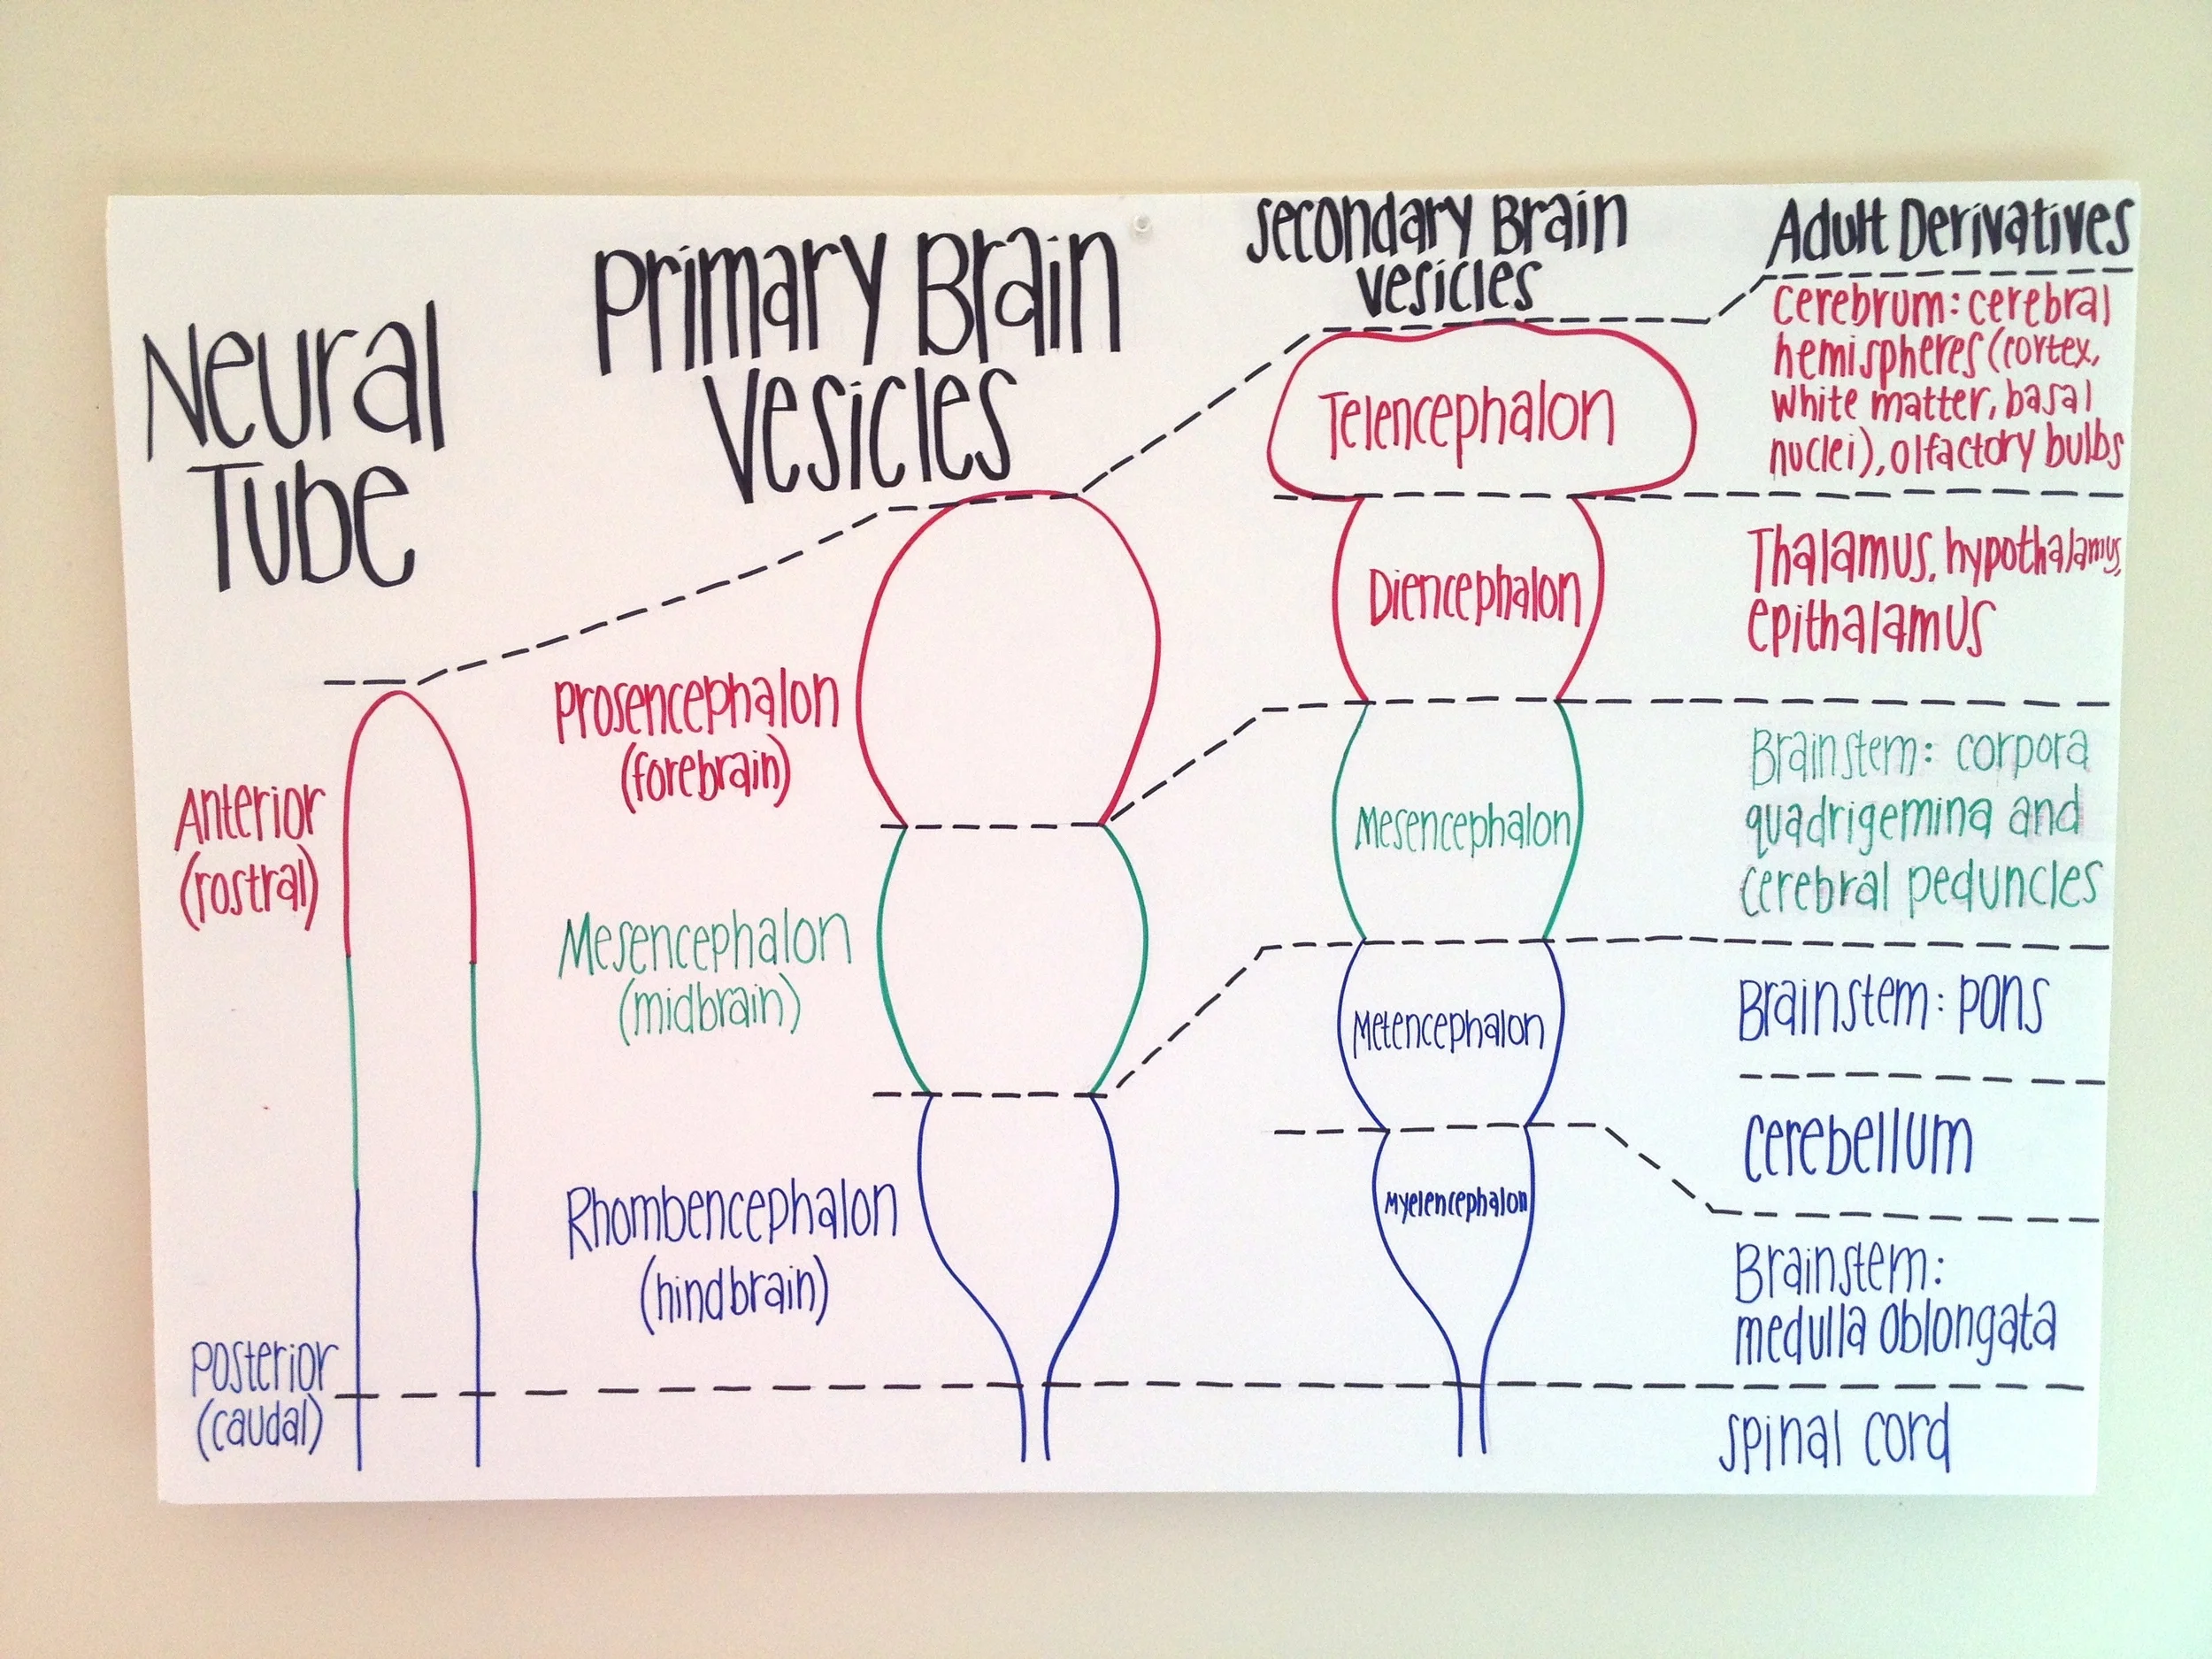 Neural
Tube
Anterior
(rostral)
Posterior
(caudal)
Primary Brain
Vesicles
Prosencephalon
(forebrain)
Mesencephalon
(midbrain)
Rhombencephalon
(hindbrain)
Secondary Brain
Vesicles
Telencephalon
Diencephalon
Mesencephalon
Metencephalon
Myelencephalon
Adult Derivatives
Cerebrum: cerebral
hemispheres (cortex,
white matter, basal
nuclei), olfactory bulbs
Thalamus, hypothalamus,
epithalamus
Brainstem: corpora
quadrigemina and
cerebral peduncles
Brainstem: pons
Cerebellum
Brainstem:
medulla oblongata
Spinal cord